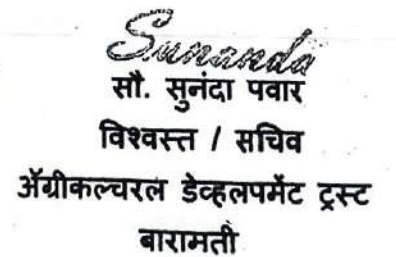 Sunanda
सौ. सुनंदा पवार
विश्वस्त / सचिव
ॲग्रीकल्चरल डेव्हलपमेंट ट्रस्ट
बारामती